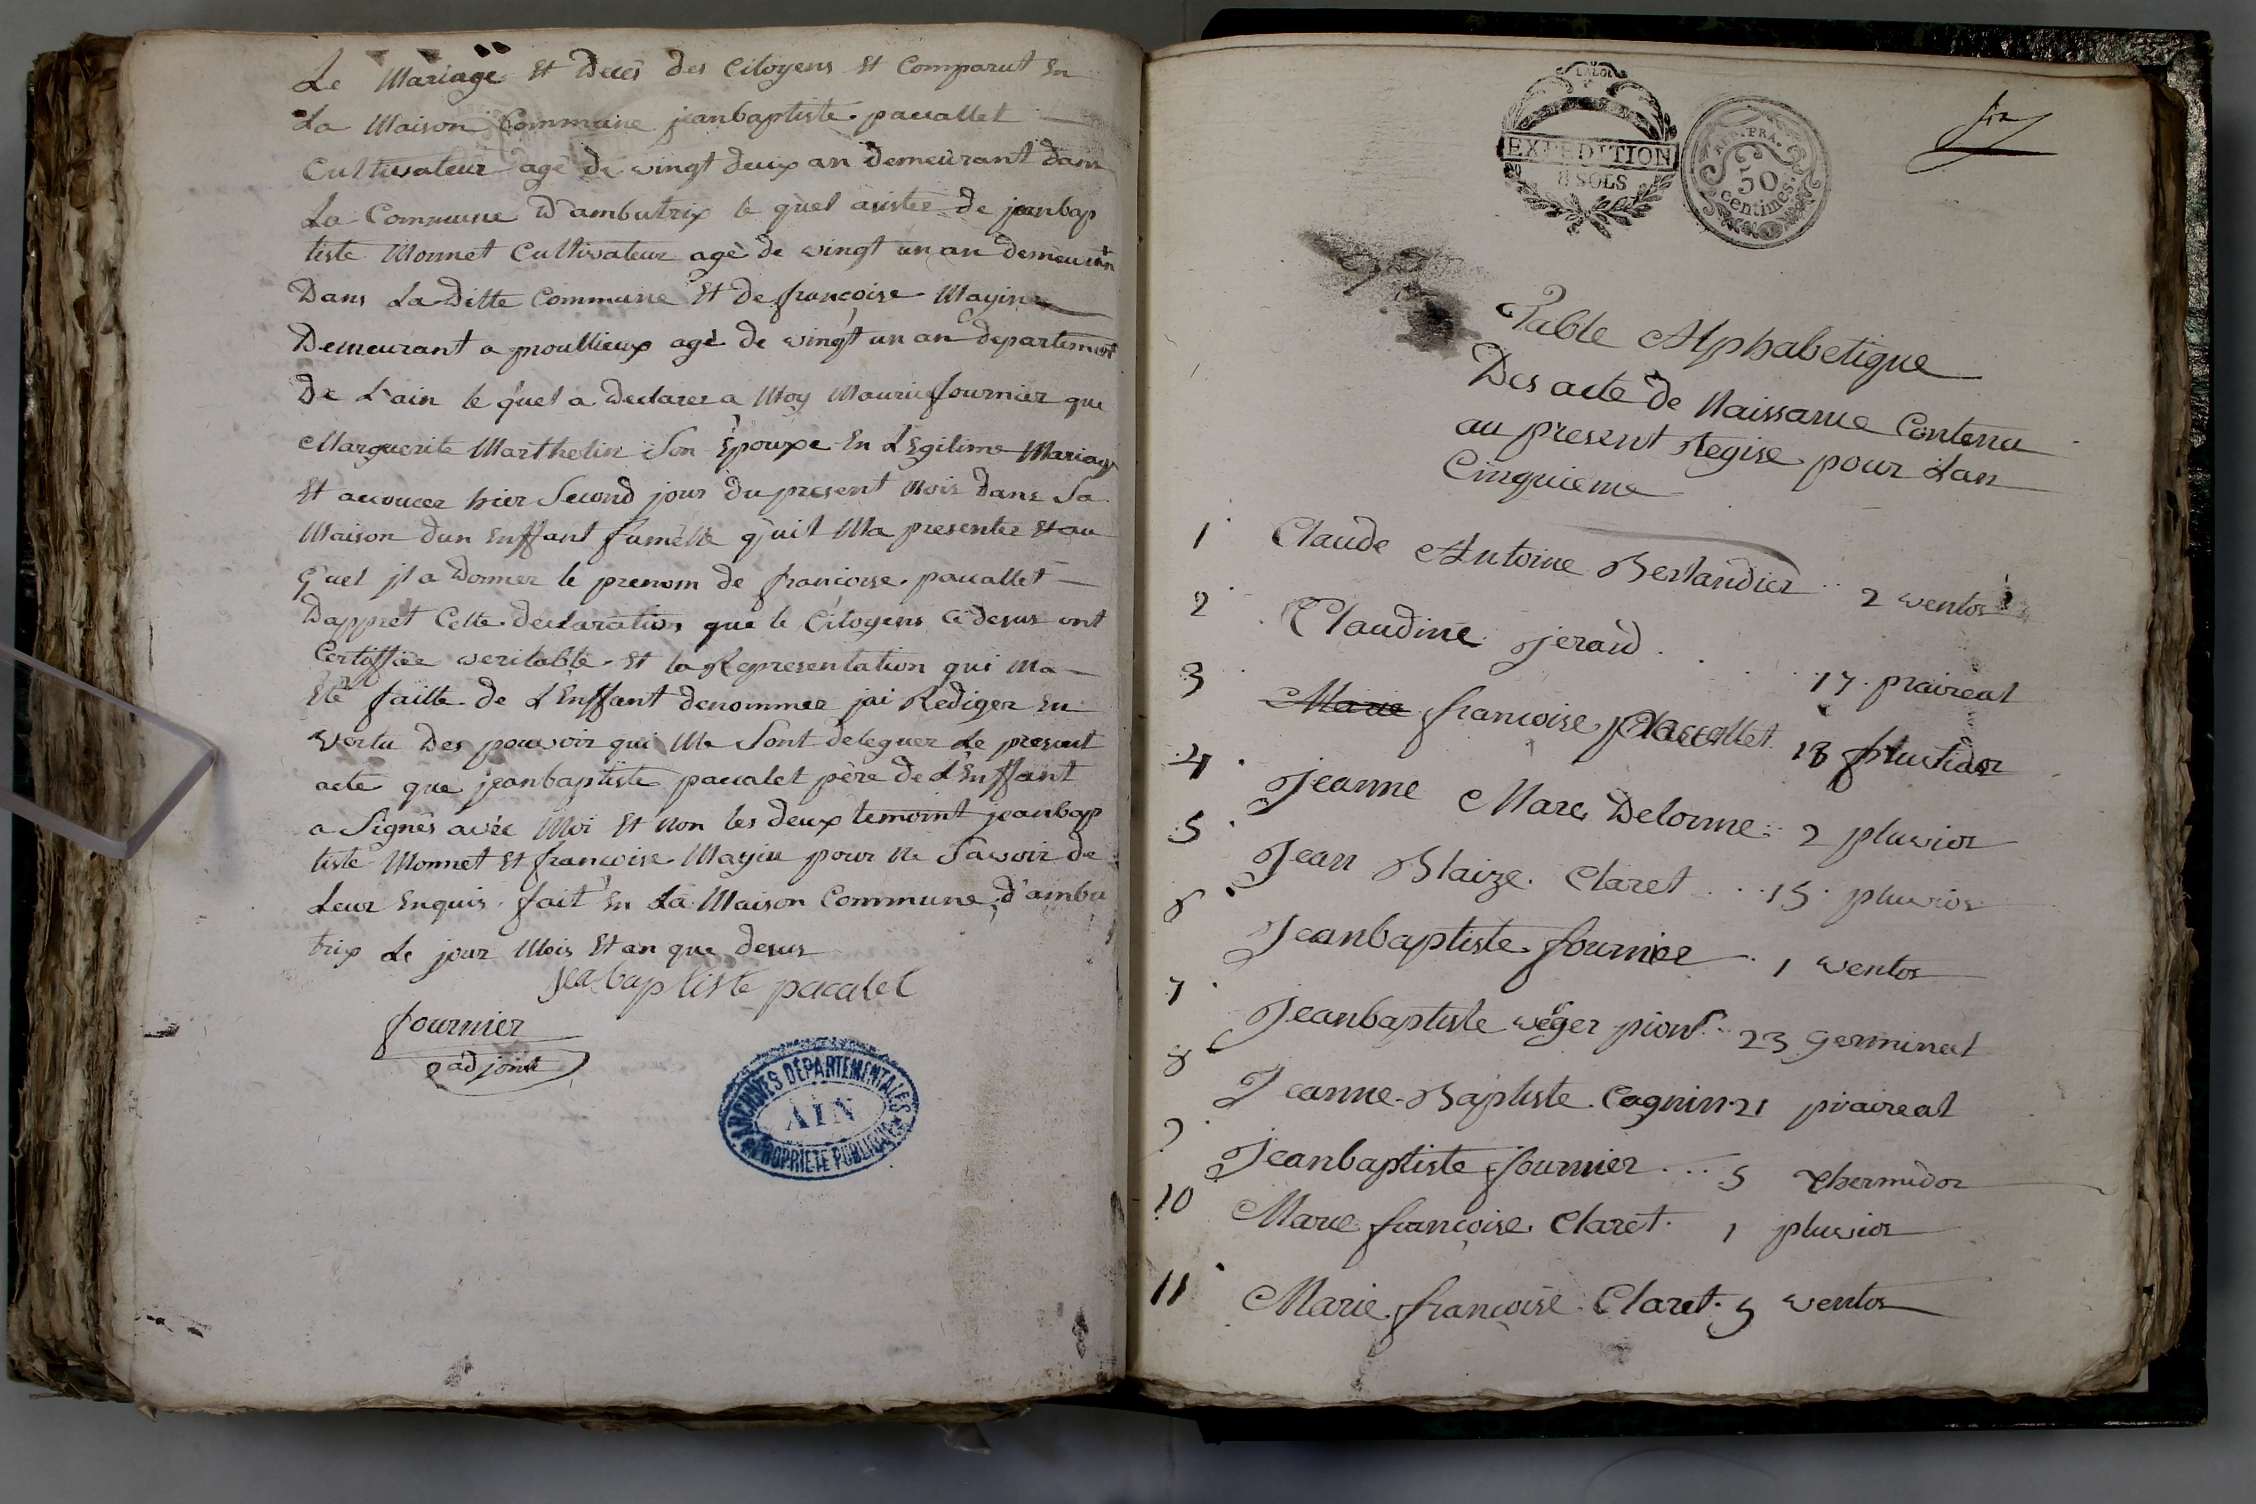 Le Mariage Et Decès des Citoyens Et Comparut En
La Maison Commune jeanbaptiste pacallet
Cultivateur agè de vingt deux an demeurant dans
La Commune D'ambutrix le quel asister de jeanbap
tiste Monnet Cultivateur agè de vingt un an demeurant
Dans La Ditte Commune Et de françoise Mayin
Demeurant a proullieux agè de vingt un an departement
De L'ain le quel a Declarer a Moy Maurice fournier que
Marguerite Marthelin Son Epouxe En LEgitime Mariage
Et accoucer hier Second jour du present Mois Dans Sa
Maison dun Enffant fumelle quil Ma presenter Et au
quel jl a Donner le prenom de francoise pacallet
Dappret Cette declaration que le Citoyens Ci desus ont
Certiffiée veritable Et la Representation qui Ma
Etè faitte de L'Enffant denommer jai Rediger En
Vertu Des pouvoir qui Me Sont deleguer Le present
acte que jeanbaptiste pacalet père de L'Enffant
a Signès avèc Moi Et Non les deux temoint jeanbap
tiste Monnet Et françoise Mayin pour Ne Savoir de
Leur Enquis fait En La Maison Commune d'ambu
trix Le jour Mois Et an que desus
jea baptiste pacalet
fournier
adjoint
ARCHIVES DÉPARTEMENTALES
AIN
PROPRIÉTÉ PUBLIQUE
LA LOI
EXPEDITION
8 SOLS
50
Centimes.
Table Alphabetique
Des acte de Naissance Contenu
au present Regise pour Lan
Cinquieme
1 Claude Antoine Berlandier 2 ventos
2 Claudine jeraud 17 praireal
3 Marie francoise pacallet 18
4 Jeanne Marc Delorme 2 pluvios
5 Jean Blaize Claret 15 pluvios
6 Jeanbaptiste fournier 1 ventos
7 Jeanbaptiste 23 Germinal
8 Jeanne Baptiste Cognin 21 praireal
9 Jeanbaptiste fournier 5 Thermidor
10 Marie françoise Claret 1 pluvios
11 Marie francoise Claret 5 ventos